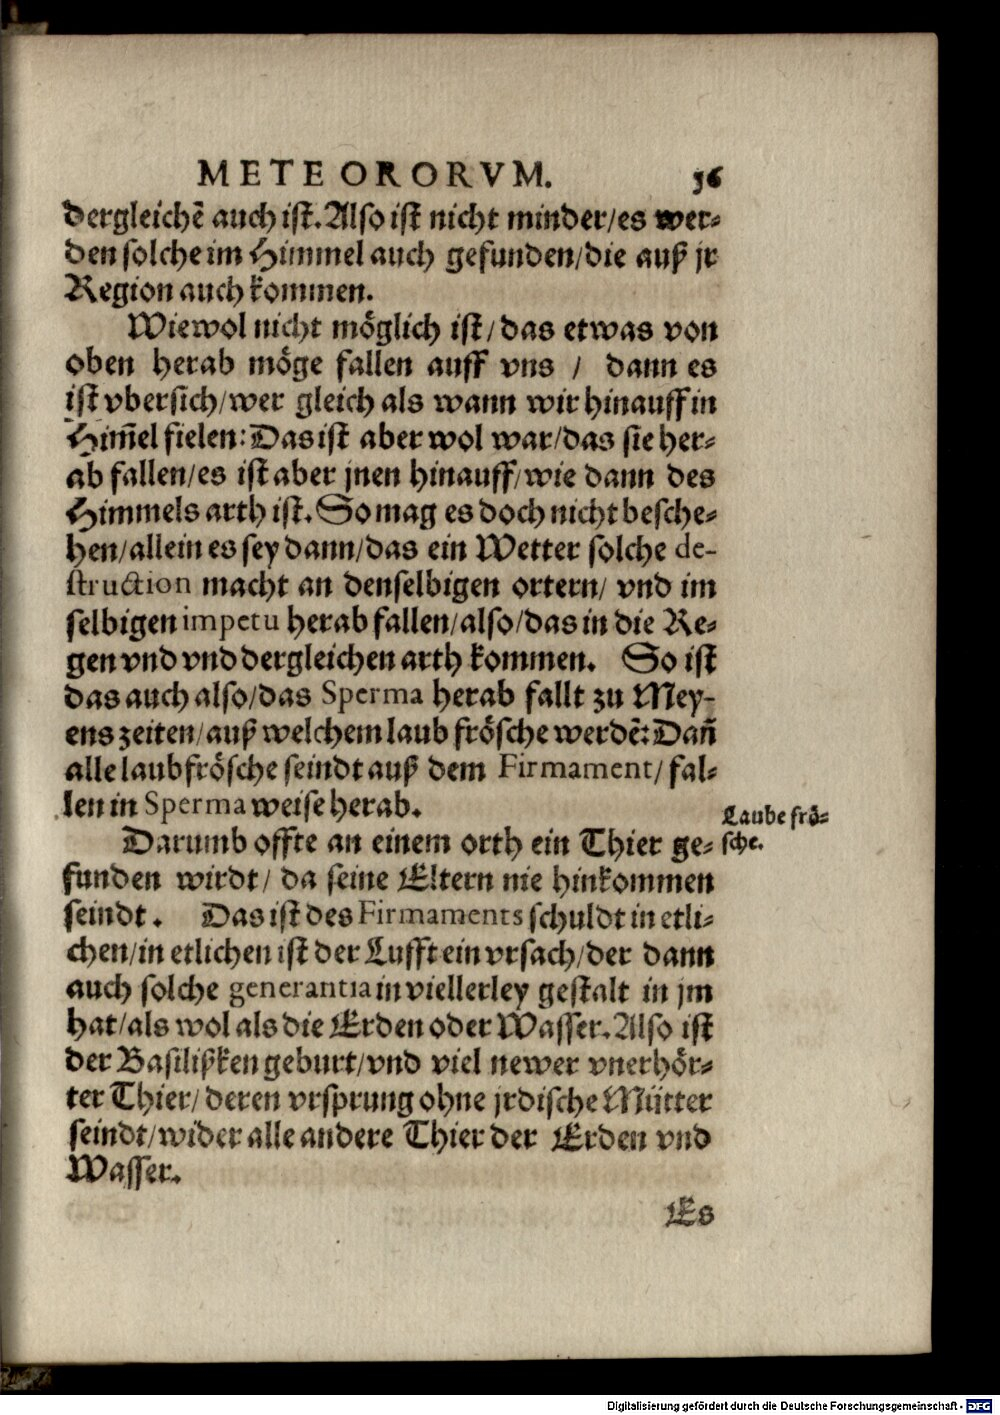 METEORORVM. 36
dergleichē auch ist. Also ist nicht minder/es wer⸗
den solche im Himmel auch gefunden/die auß jr
Region auch kommen.
Wiewol nicht möglich ist/das etwas von
oben herab möge fallen auff vns / dann es
ist vbersich/wer gleich als wann wir hinauff in
Him̄el fielen: Das ist aber wol war/das sie her⸗
ab fallen/es ist aber jnen hinauff/wie dann des
Himmels arth ist. So mag es doch nicht besche⸗
hen/allein es sey dann/das ein Wetter solche de-
struction macht an denselbigen ortern/ vnd im
selbigen impetu herab fallen/also/das in die Re⸗
gen vnd vnd dergleichen arth kommen. So ist
das auch also/das Sperma herab fallt zu Mey-
ens zeiten/auß welchem laub frösche werdē: Dañ
alle laubfrösche seindt auß dem Firmament/ fal⸗
len in Sperma weise herab.
Laube frö⸗
sche.
Darumb offte an einem orth ein Thier ge⸗
funden wirdt/ da seine Eltern nie hinkommen
seindt. Das ist des Firmaments schuldt in etli⸗
chen/in etlichen ist der Lufft ein vrsach/der dann
auch solche generantia in viellerley gestalt in jm
hat/als wol als die Erden oder Wasser. Also ist
der Basilißken geburt/vnd viel newer vnerhör⸗
ter Thier/ deren vrsprung ohne jrdische Mütter
seindt/wider alle andere Thier der Erden vnd
Wasser.
Es
Digitalisierung gefördert durch die Deutsche Forschungsgemeinschaft - DFG